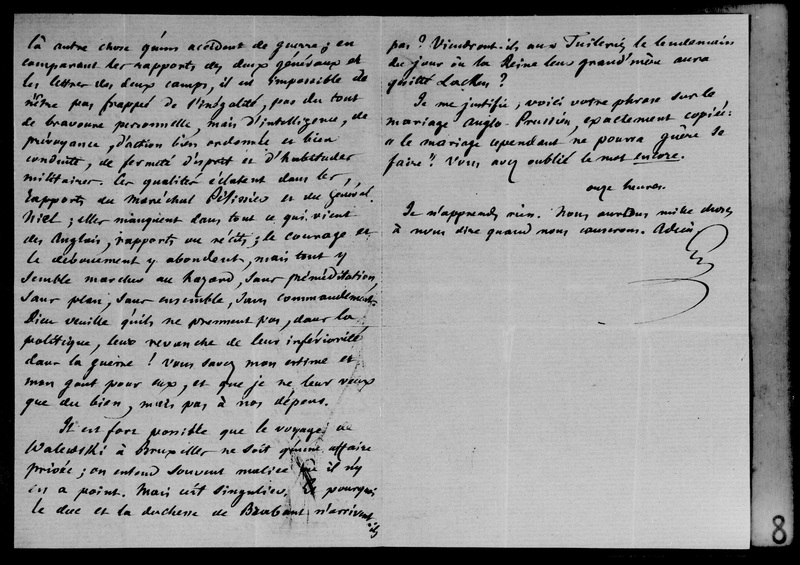 là autre chose qu'un accident de guerre ; en
comparant les rapports des deux généraux et
les lettres des deux camps, il est impossible de
n'être pas frappé de l'inégalité, pas du tout
de bravoure personnelle, mais d'intelligence, de
prévoyance, d'action bien ordonnée et bien
conduite, de fermeté d'esprit et d'habitudes
militaires. Ces qualités éclatent dans les
rapports du maréchal Pélissier et du général
Niel ; elles manquent dans tout ce qui vient
des Anglais, rapports ou récits ; le courage et
le dévouement y abondent, mais tout y
semble marcher au hazard, sans préméditation,
sans plan, sans ensemble, sans commandement.
Dieu veuille qu'ils ne prennent pas, dans la
politique, leur revanche de leur infériorité
dans la guerre ! Vous savez mon estime et
mon goût pour eux, et que je ne leur veux
que du bien, mais pas à nos dépens.
Il est fort possible que le voyage de
Walewski à Bruxelles ne soit qu'une affaire
privée ; on entend souvent malice où il n'y
en a point. Mais c'est singulier. Et pourquoi
le duc et la duchesse de Brabant n'arrivent
ils
pas ? Viendront-ils aux Tuileries le lendemain
du jour où la Reine leur grand'mère aura
quitté Lacken ?
Je me justifie ; voici votre phrase sur le
mariage Anglo-Prussien, exactement copiée :
" le mariage cependant ne pourra guère se
faire ". Vous avez oublié le mot encore.
onze heures.
Je n'apprends rien. Nous aurions mille choses
à nous dire quand nous causerons. Adieu
8